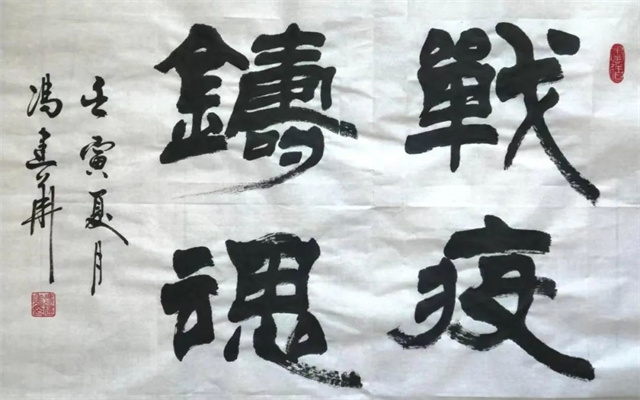 戰疫
鑄魂
壬寅夏月
冯建華